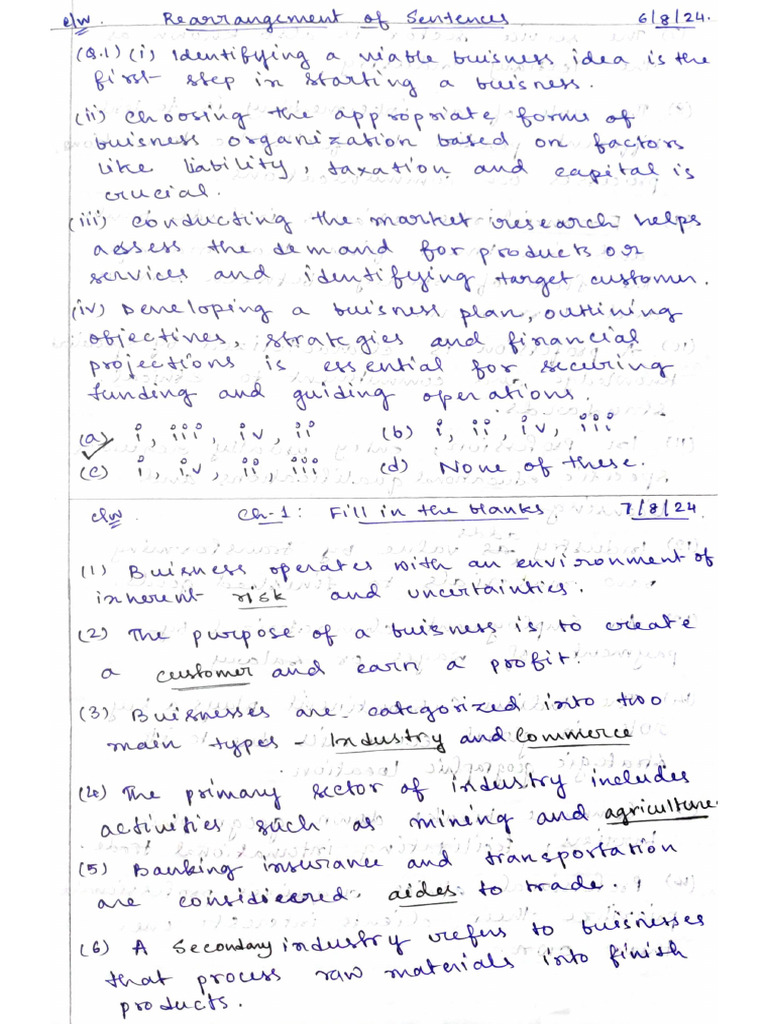 c/w. Rearrangement of Sentences 6/8/24.
(Q.1) (i) Identifying a viable buisness idea is the
first step in starting a buisness.
(ii) Choosing the appropriate forms of
buisness organization based on factors
like liability, taxation and capital is
crucial.
(iii) Conducting the market research helps
assess the demand for products or
services and identifying target customer.
(iv) Developing a buisness plan, outlining
objectives, strategies and financial
projections is essential for securing
funding and guiding operations.
(a) i, iii, iv, ii (b) i, ii, iv, iii
(c) i, iv, ii iii (d) None of these.
c/w. Ch-1: Fill in the blanks 7/8/24.
(1) Buisness operates with an environment of
inherent risk and uncertainties.
(2) The purpose of a buisness is to create
a customer and earn a profit.
(3) Buisnesses are categorized into two
main types - Industry and Commerce
(4) The primary sector of industry includes
activities such as mining and agriculture.
(5) Banking insurance and transportation
are considered aides to trade.
(6) A Secondary industry refers to buisnesses
that process raw materials into finish
products.